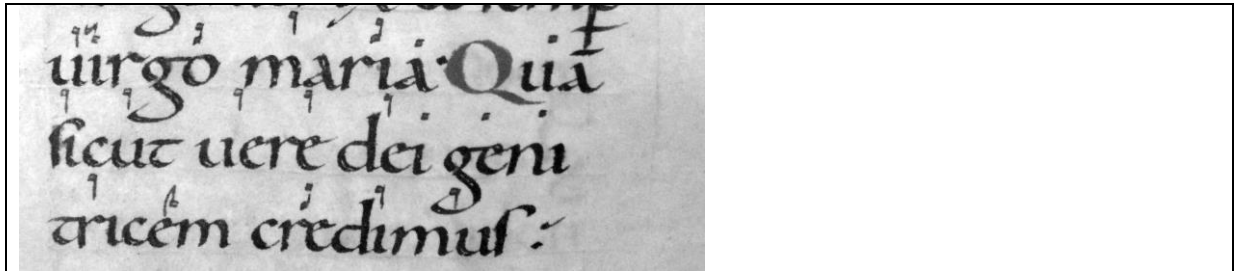 uirgo maria· Quia
sicut uere dei geni
tricem credimus :